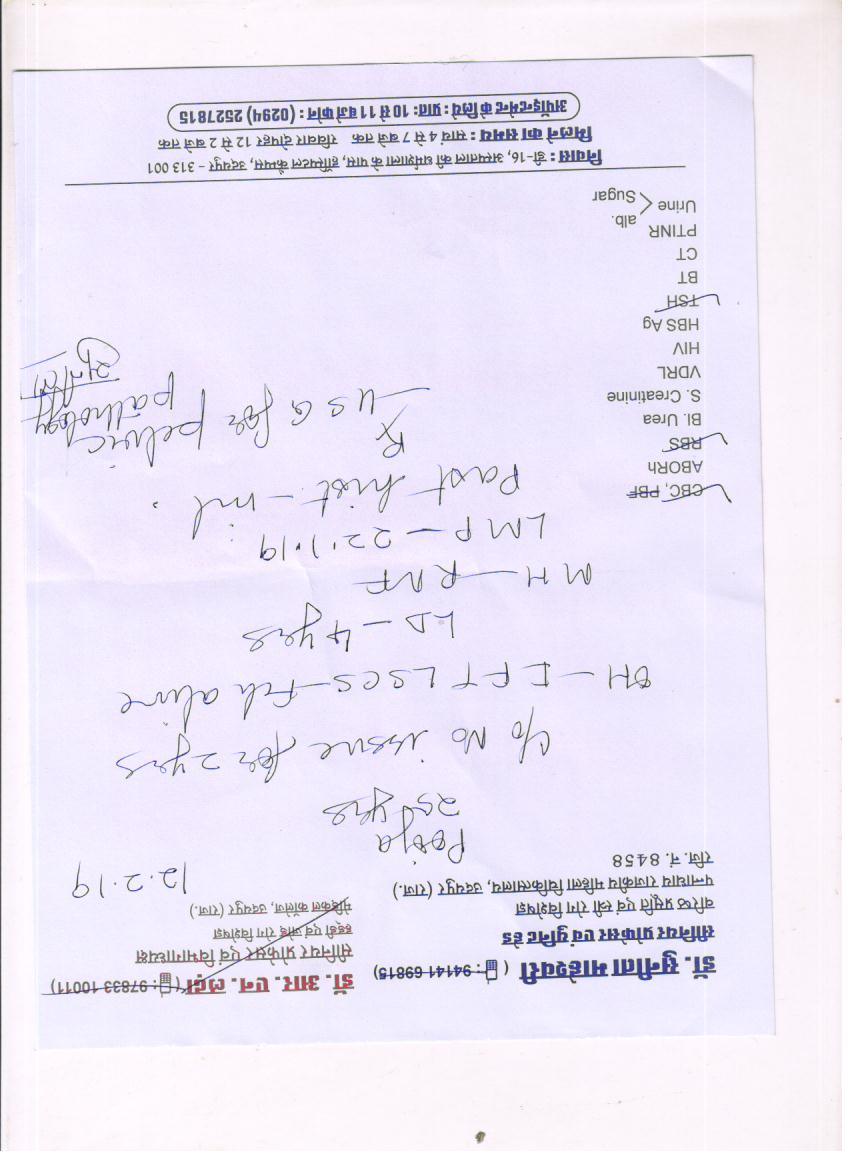 डॉ. सुनीता माहेश्वरी ( : 94141 69815)
सीनियर प्रोफेसर एवं यूनिट हेड
वरिष्ठ प्रसूति एवं स्त्री रोग विशेषज्ञ
पन्नाधाय राजकीय महिला चिकित्सालय, उदयपुर (राज.)
रजि. नं. 8458
डॉ. आर. एन. लढ़ा ( : 97833 10011)
सीनियर प्रोफेसर एवं विभागाध्यक्ष
हड्डी एवं जोड़ रोग विशेषज्ञ
मेडिकल कॉलेज, उदयपुर (राज.)
12.2.19
Pooja
25 yrs
c/o No issue for 2 yrs
OH - I FT LSCS - Fch alive
LD - 4 yrs
MH - RNF
LMP - 22.1.19
Past hist - nil.
Rx
- USG for pelvic
pathology
CBC, PBF
ABORh
RBS
Bl. Urea
S. Creatinine
VDRL
HIV
HBS Ag
TSH
BT
CT
PTINR
Urine < alb.
Sugar
निवास : डी-16, अस्पताल की धर्मशाला के पास, हॉस्पिटल कैम्पस, उदयपुर - 313 001
मिलने का समय : सायं 4 से 7 बजे तक रविवार दोपहर 12 से 2 बजे तक
अपॉइन्टमेन्ट के लिये : प्रातः 10 से 11 बजे फोन : (0294) 2527815